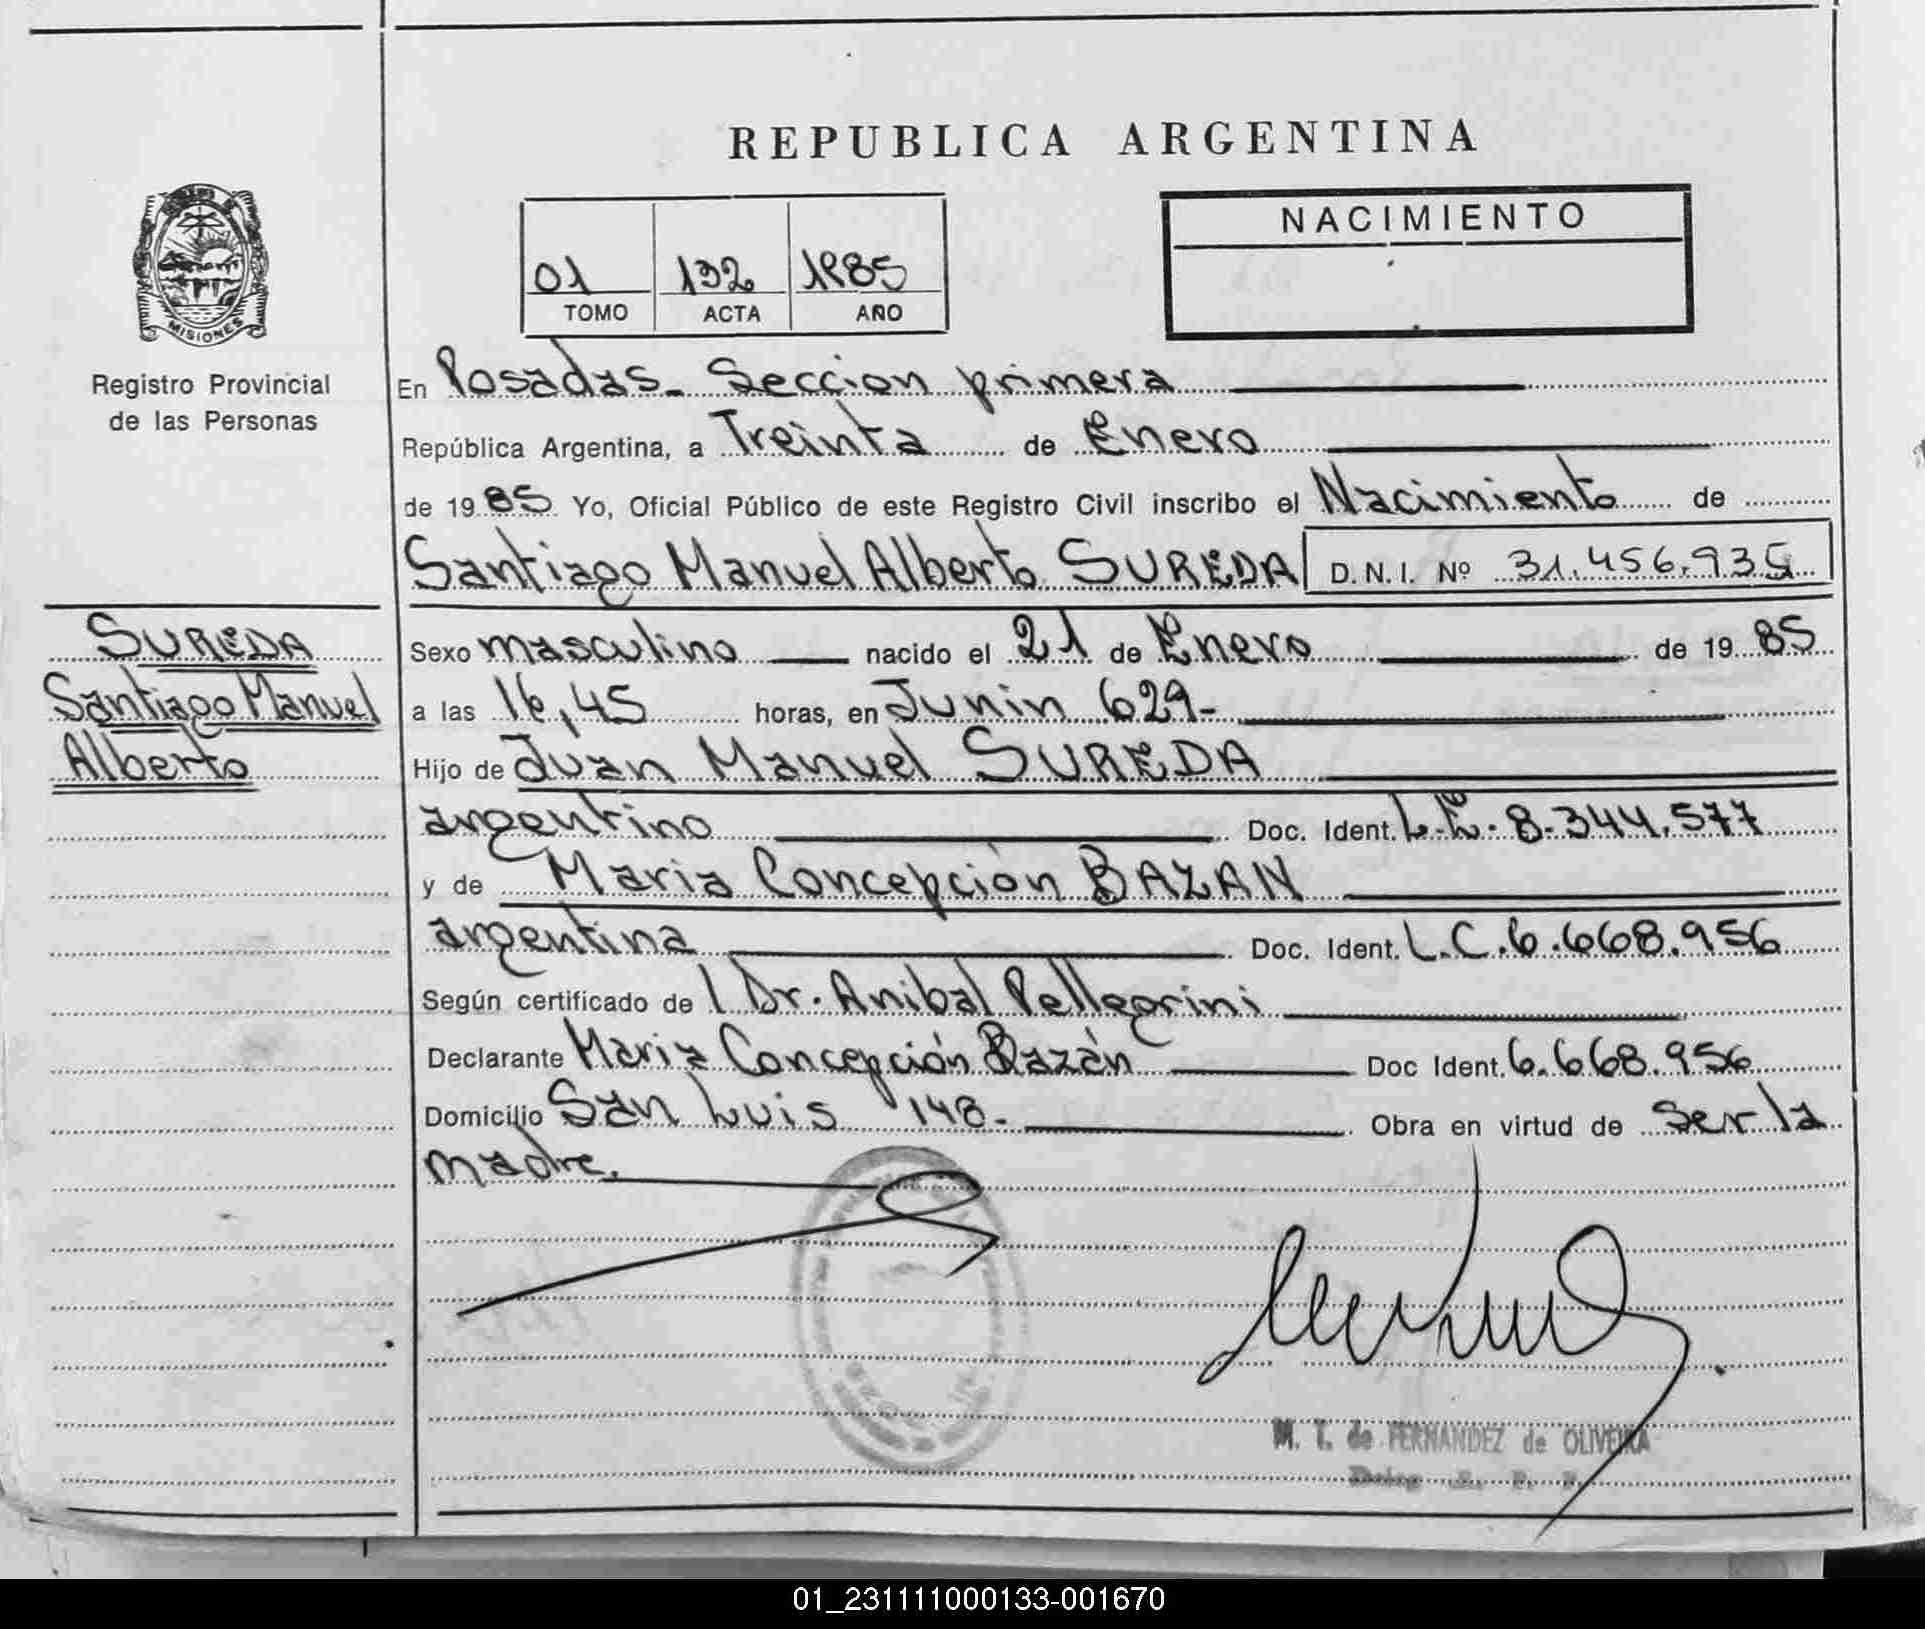 REPUBLICA ARGENTINA
MISIONES
Registro Provincial
de las Personas
01 132 1985
TOMO ACTA AÑO
NACIMIENTO
En Posadas - Seccion primera
República Argentina, a Treinta de Enero
de 19 85 Yo, Oficial Público de este Registro Civil inscribo el Nacimiento de
Santiago Manuel Alberto SUREDA D.N.I. Nº 31.456.935
SUREDA
Santiago Manuel
Alberto
Sexo masculino nacido el 21 de Enero de 19 85
a las 16,45 horas, en Junin 629-
Hijo de Juan Manuel SUREDA
argentino Doc. Ident. L.E. 8.344.577
y de Maria Concepción BAZAN
argentina Doc. Ident. L.C. 6.668.956
Según certificado de l Dr. Anibal Pellegrini
Declarante Maria Concepción Bazán Doc Ident. 6.668.956
Domicilio San Luis 148- Obra en virtud de ser la
madre.
M. T. de FERNANDEZ de OLIVEIRA
01_231111000133-001670